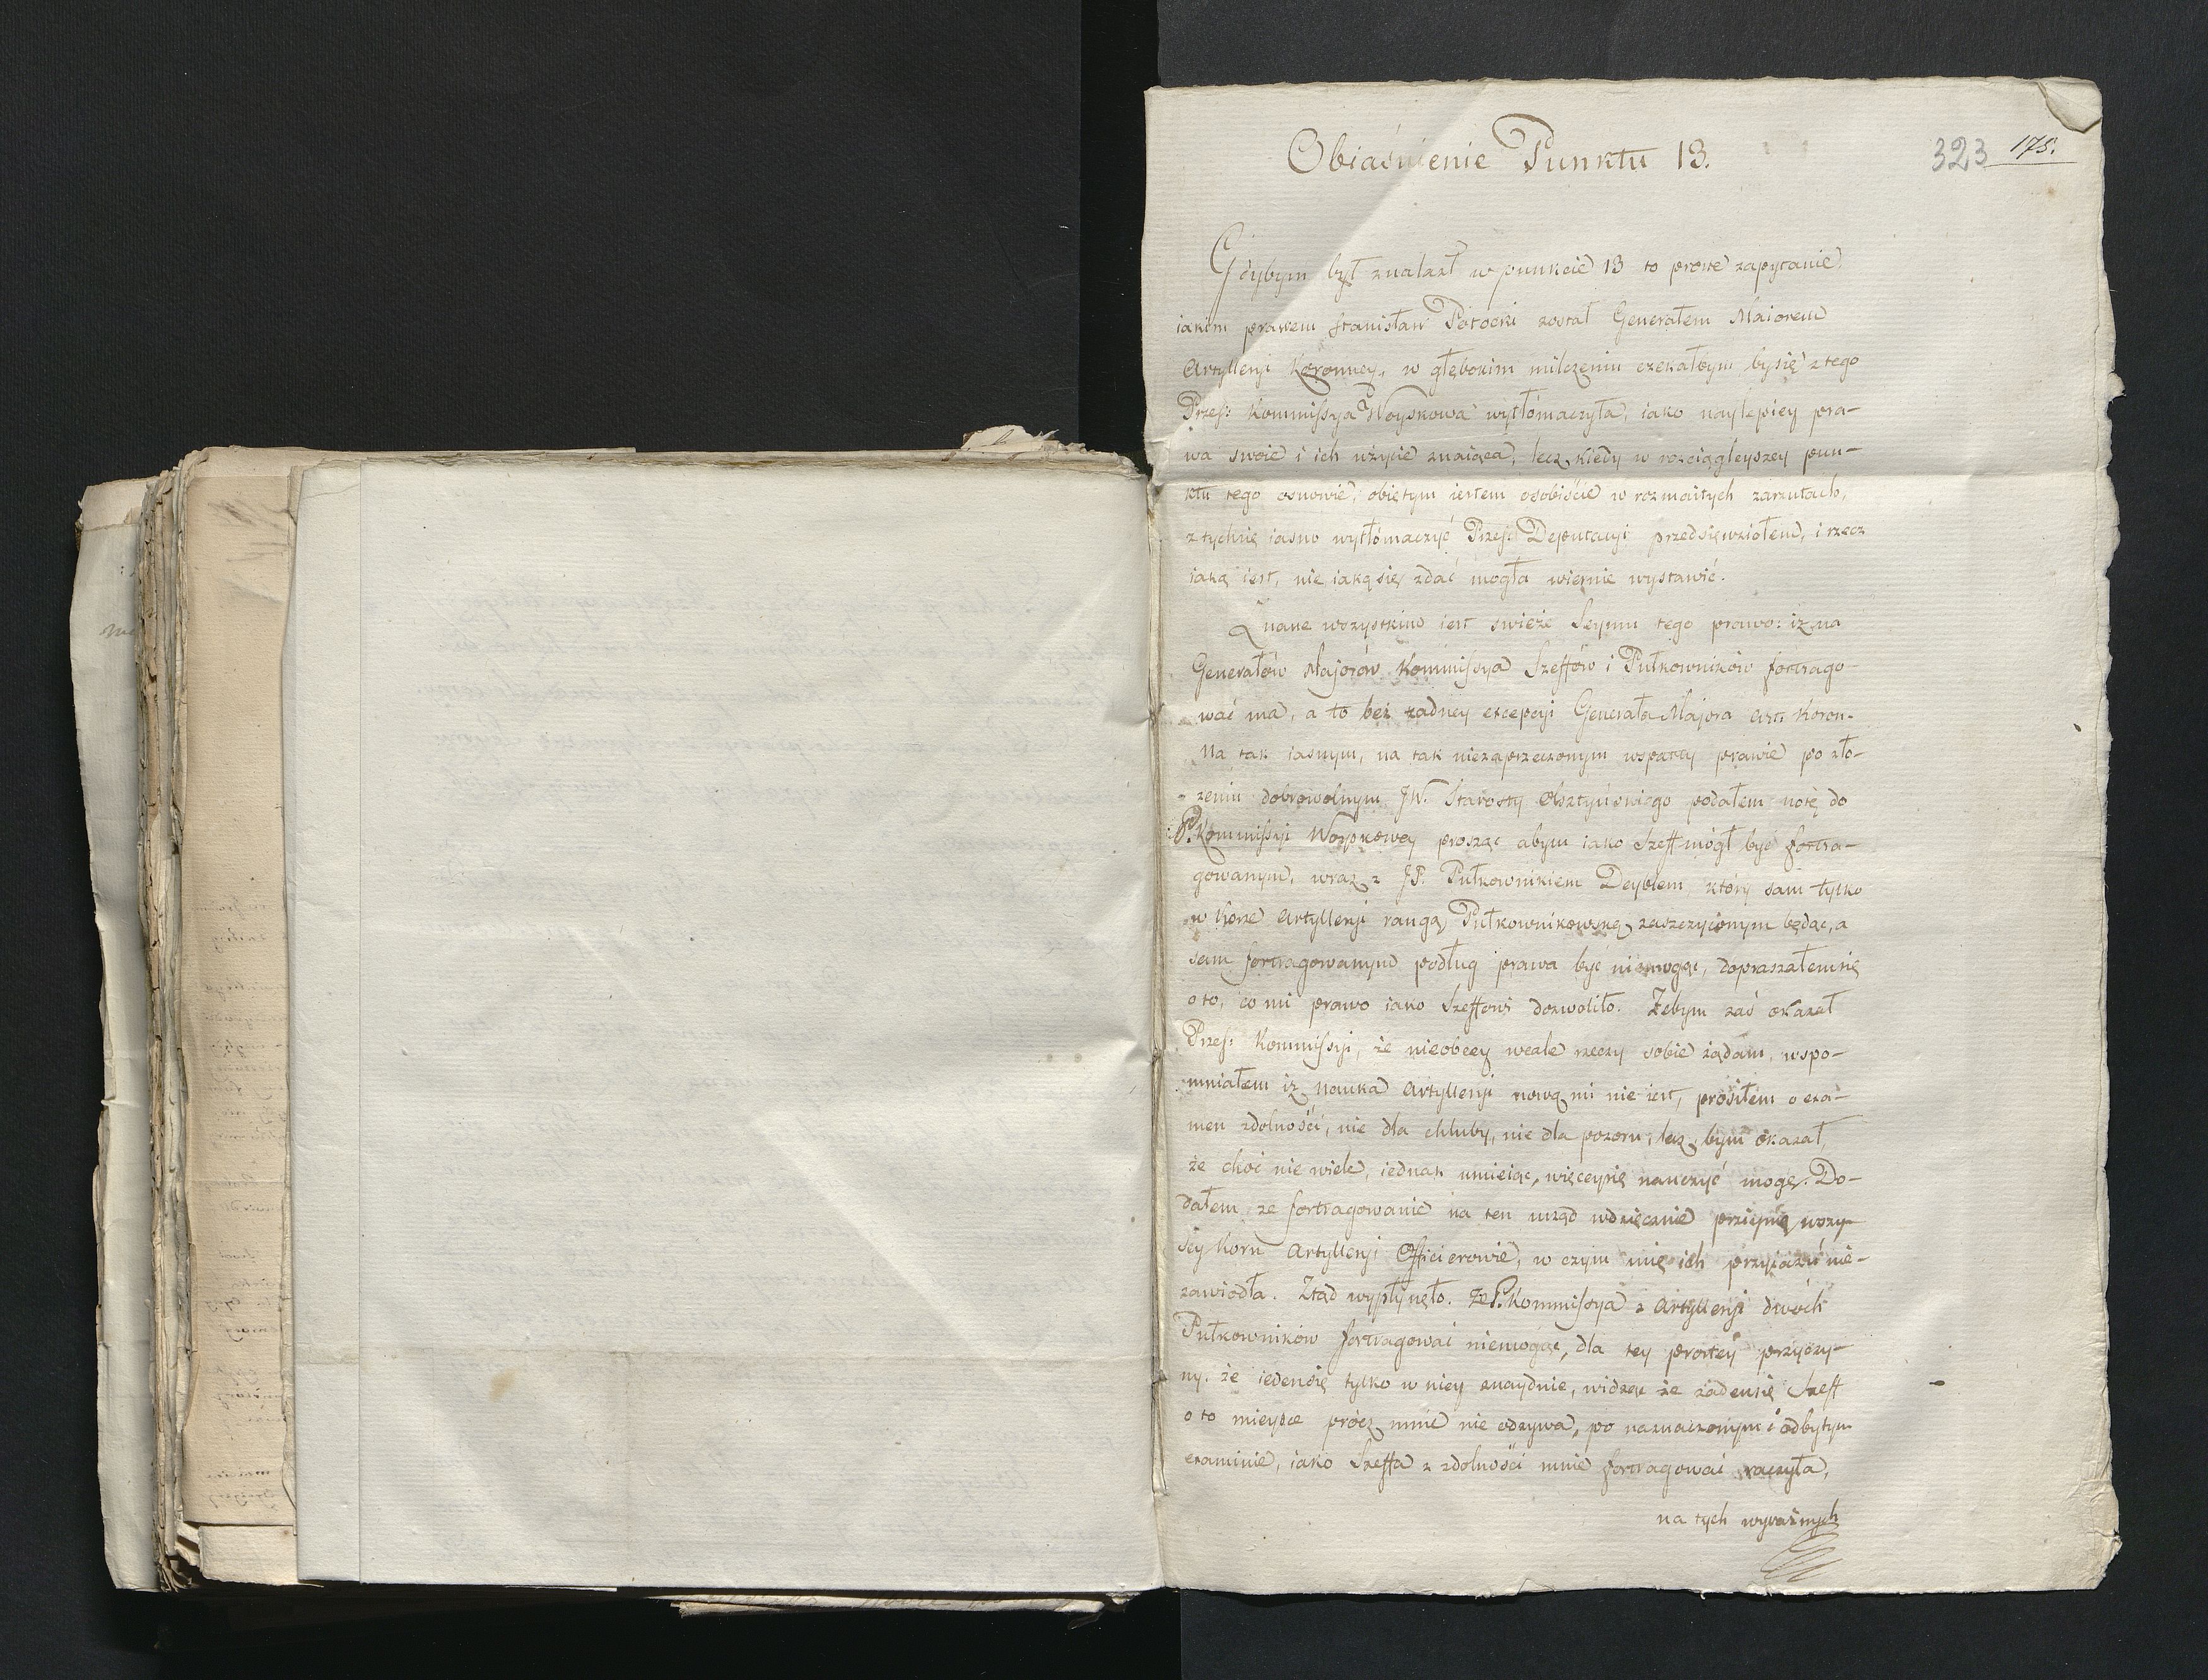 Obiaśnienie Punktu 13.
323 175.
Gdybym był znalazł w punkcie 13 to proste zapytanie,
iakim prawem Stanisław Potocki został Generałem Maiorem
Artylleryi Koronney, w głębokim milczeniu czekałbym by się z tego
Przes: Kommissya Woyskowa wytłómaczyła, iako naylepiey pra-
wa swoie i ich użycie znaiąca, lecz kiedy w rozciągleyszey pun-
ktu tego osnowie, obiętym iestem osobiście w rozmaitych zarzutach,
z tych się iasno wytłómaczyć Przes: Deputacyi przedsięwziołem, i rzecz
iaką iest, nie iaką się zdać mogła wiernie wystawić.
Znane wszystkim iest swieże Seymu tego prawo: iz na
Generałów Majorów Kommissya Szeffów i Pułkowników fortrago-
wać ma, a to bez żadney excepcyi Generała Majora Art: Koron.
Na tak iasnym, na tak niezaprzeczonym wsparty prawie po zło-
zeniu dobrowolnym JW. Starosty Olsztyńskiego podałem notę do
P. Kommissyi Woyskowey prosząc abym iako Szeff mógł być fortra-
gowanym, wraz z JP. Pułkownikiem Deyblem który sam tylko
w Korze Artylleryi rangą Pułkownikowską zaszczyconym będąc, a
sam fortragowanym podług prawa być niemogąc, dopraszałem się
o to, co mi prawo iako Szeffowi dozwoliło. Żebym zaś okazał
Przes: Kommissyi, że nieobcey wcale rzeczy sobie żądam, wspo-
mniałem iz nauka Artylleryi nową mi nie iest, prosiłem o exa-
men zdolności, nie dla chluby, nie dla pozoru, lecz bym okazał,
że choć nie wiele, iednak umieiąc, więcey się nauczyć mogę. Do-
dałem ze fortragowanie na ten urząd wdzięcznie przyimą wszy-
scy Koru Artylleryi Officierowie, w czym mię ich przyiaźń nie-
zawiodła. Ztąd wypłynęło. Że P. Kommissya z Artylleryi dwóch
Pułkowników fortragować niemogąc, dla tey prostey przyczy-
ny. że ieden się tylko w niey znayduie, widząc że żaden się Szeff
o to mieysce prócz mnie nie odzywa, po naznaczonym i odbytym
examinie, iako Szeffa z zdolności mnie fortragować raczyła,
na tych wyraźnych